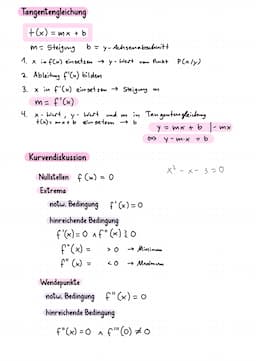 Tangentengleichung
t(x) = mx + b
m = Steigung b = y-Achsenabschnitt
1. x in f(x) einsetzen → y-Wert vom Punkt P(x/y)
2. Ableitung f'(x) bilden
3. x in f'(x) einsetzen → Steigung m
m = f'(x)
4. x-Wert, y-Wert und m in Tangentengleichung
t(x) = mx + b einsetzen → b
y = mx + b |- mx
⇔ y - mx = b
Kurvendiskussion
Nullstellen f(x) = 0
x² - x - 3 = 0
Extrema
notw. Bedingung f'(x) = 0
hinreichende Bedingung
f'(x) = 0 ∧ f"(x) ≷ 0
f"(x) = > 0 → Minimum
f"(x) = < 0 → Maximum
Wendepunkte
notw. Bedingung f"(x) = 0
hinreichende Bedingung
f"(x) = 0 ∧ f'''(0) ≠ 0